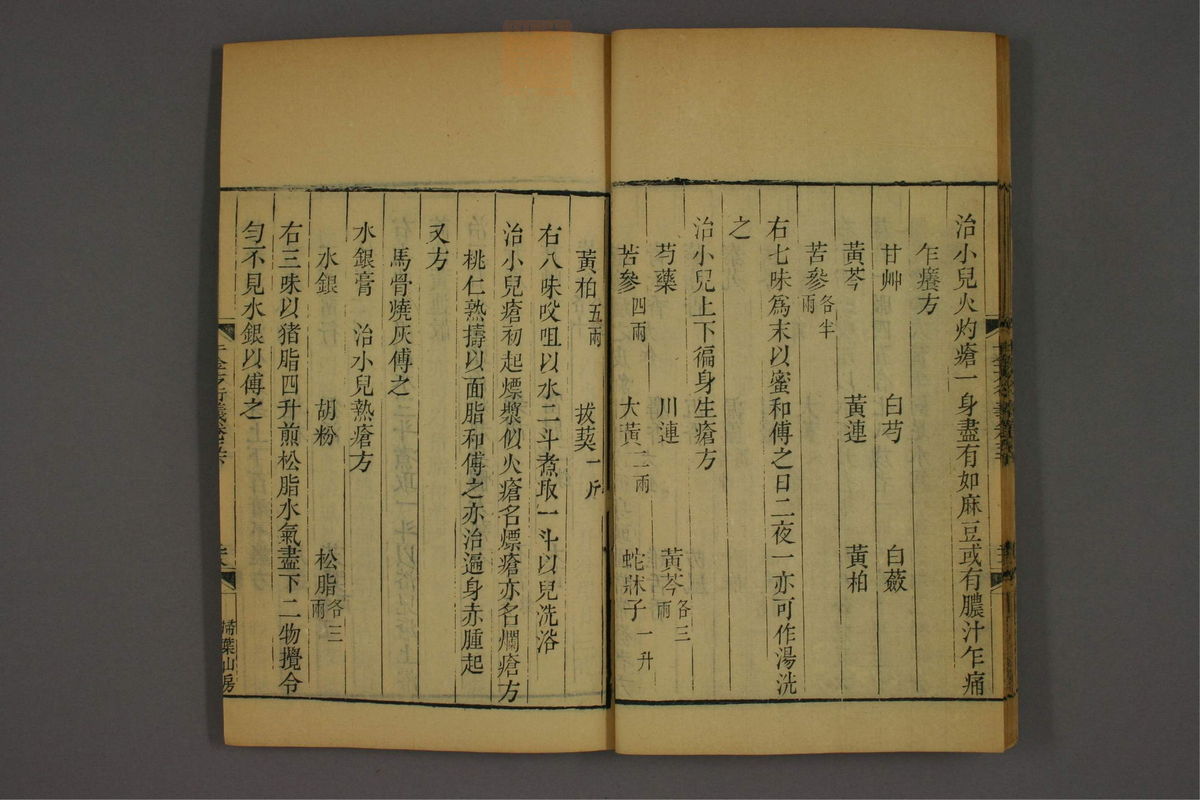 治小兒火灼瘡一身盡有如麻豆或有膿汁乍痛
乍癢方
甘艸 白芍 白蘞
黃芩 黃連 黃柏
苦參各半兩
右七味爲末以蜜和傅之日二夜一亦可作湯洗
之
治小兒上下徧身生瘡方
芍藥 川連 黃芩各三兩
苦參四兩 大黃二兩 蛇牀子一升
黃柏五兩 拔葜一斤
右八味㕮咀以水二斗煮取一斗以兒洗浴
治小兒瘡初起熛漿似火瘡名熛瘡亦名爛瘡方
桃仁熟擣以面脂和傅之亦治遍身赤腫起
又方
馬骨燒灰傅之
水銀膏 治小兒熱瘡方
水銀 胡粉 松脂各三兩
右三味以猪脂四升煎松脂水氣盡下二物攪令
勻不見水銀以傅之
千金方衍義卷五下
掃葉山房